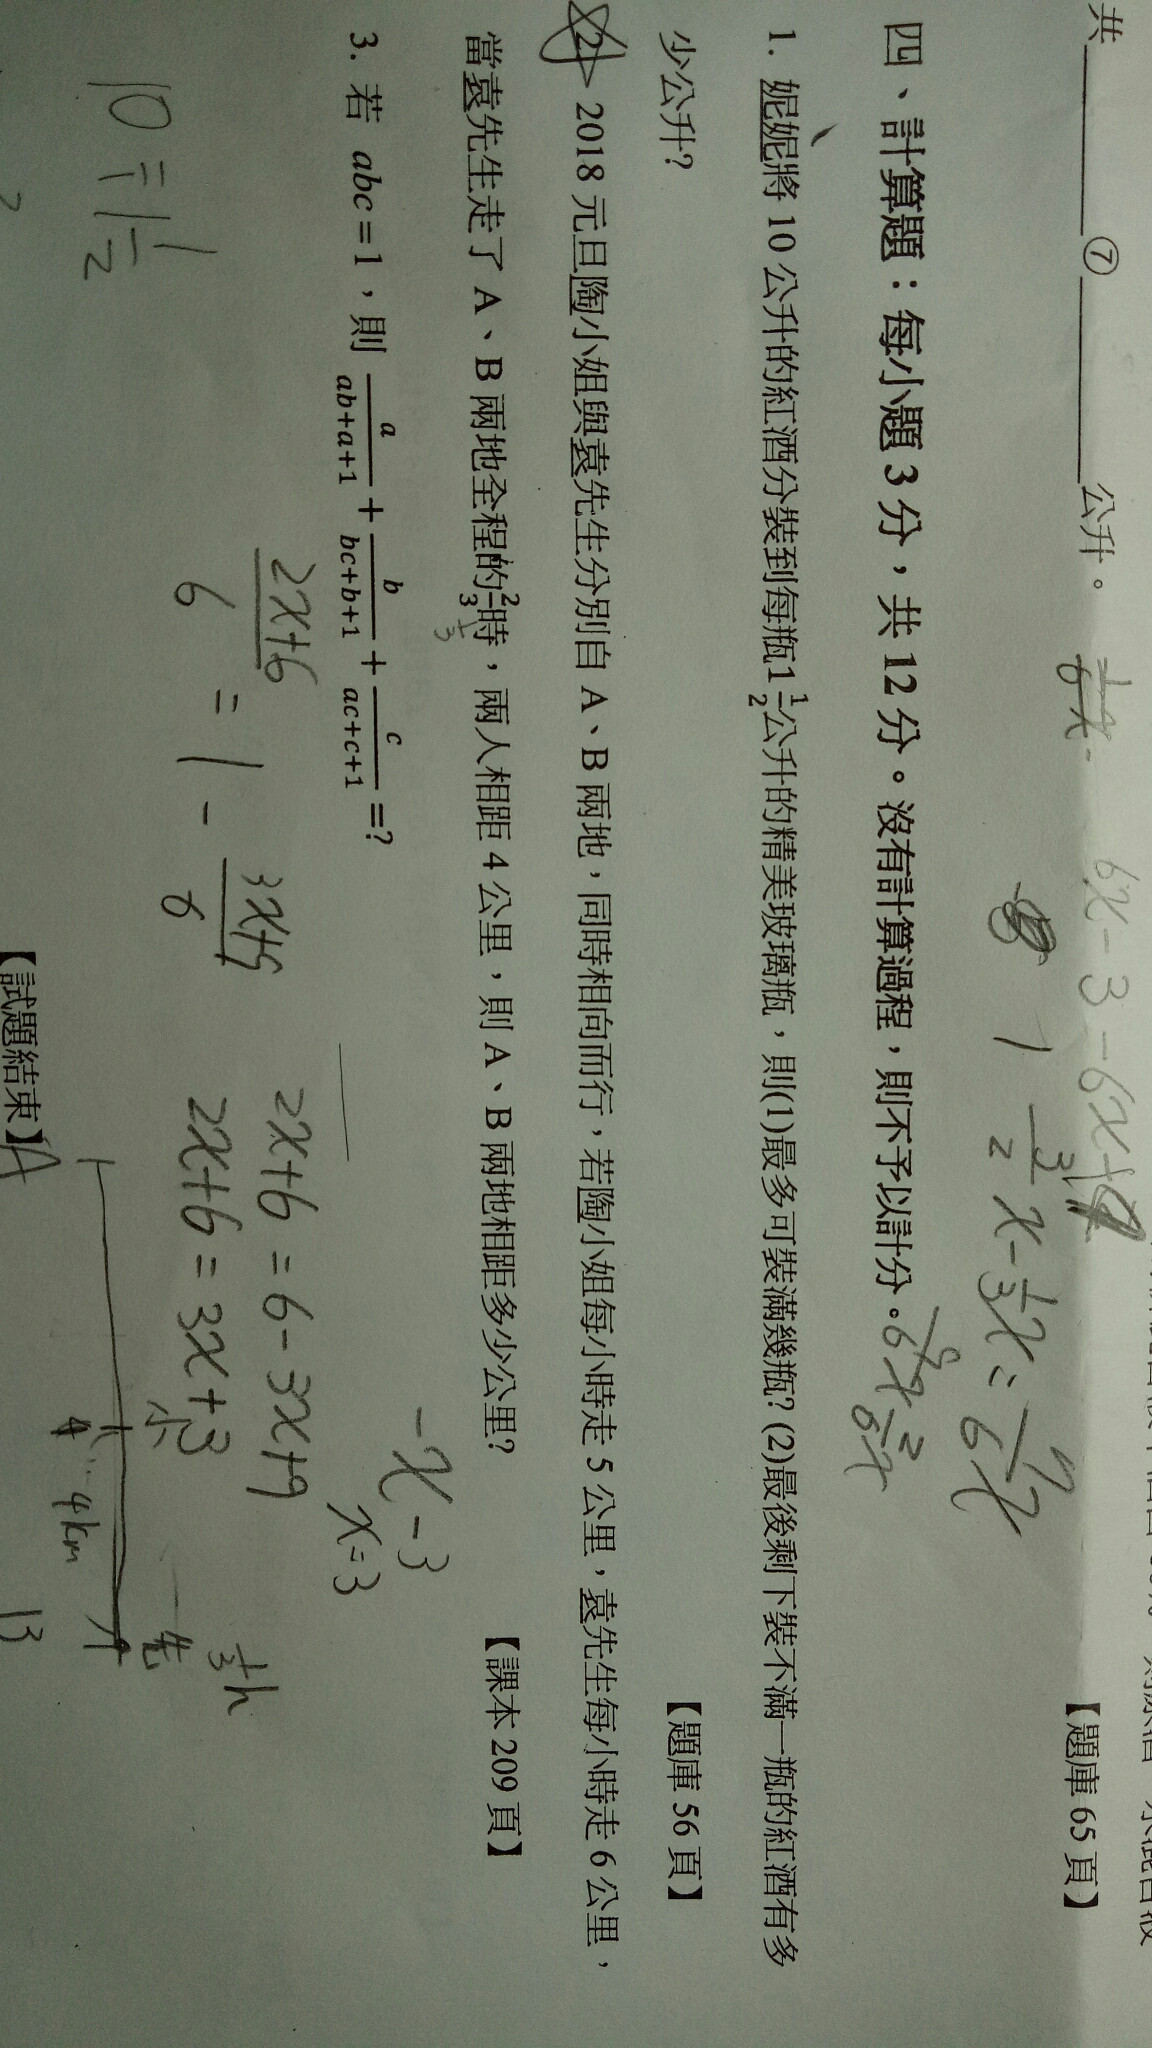 共 ⑦ 公升。 【題庫 65 頁】
四、計算題：每小題 3 分，共 12 分。沒有計算過程，則不予以計分。
1. 妮妮將 10 公升的紅酒分裝到每瓶1 1/2 公升的精美玻璃瓶，則(1)最多可裝滿幾瓶? (2)最後剩下裝不滿一瓶的紅酒有多
少公升? 【題庫 56 頁】
2. 2018 元旦陶小姐與袁先生分別自 A、B 兩地，同時相向而行，若陶小姐每小時走 5 公里，袁先生每小時走 6 公里，
當袁先生走了 A、B 兩地全程的 2/3 時，兩人相距 4 公里，則 A、B 兩地相距多少公里? 【課本 209 頁】
3. 若 abc=1，則 a/(ab+a+1) + b/(bc+b+1) + c/(ac+c+1) =?
-x-3
x=3
(2x+6)/6 = 1 - (3x+9)/6
2x+6=6-3x+9
2x+6=3x+3
1/3 h
10÷1 1/2
小 先
4km
13
【試題結束】A